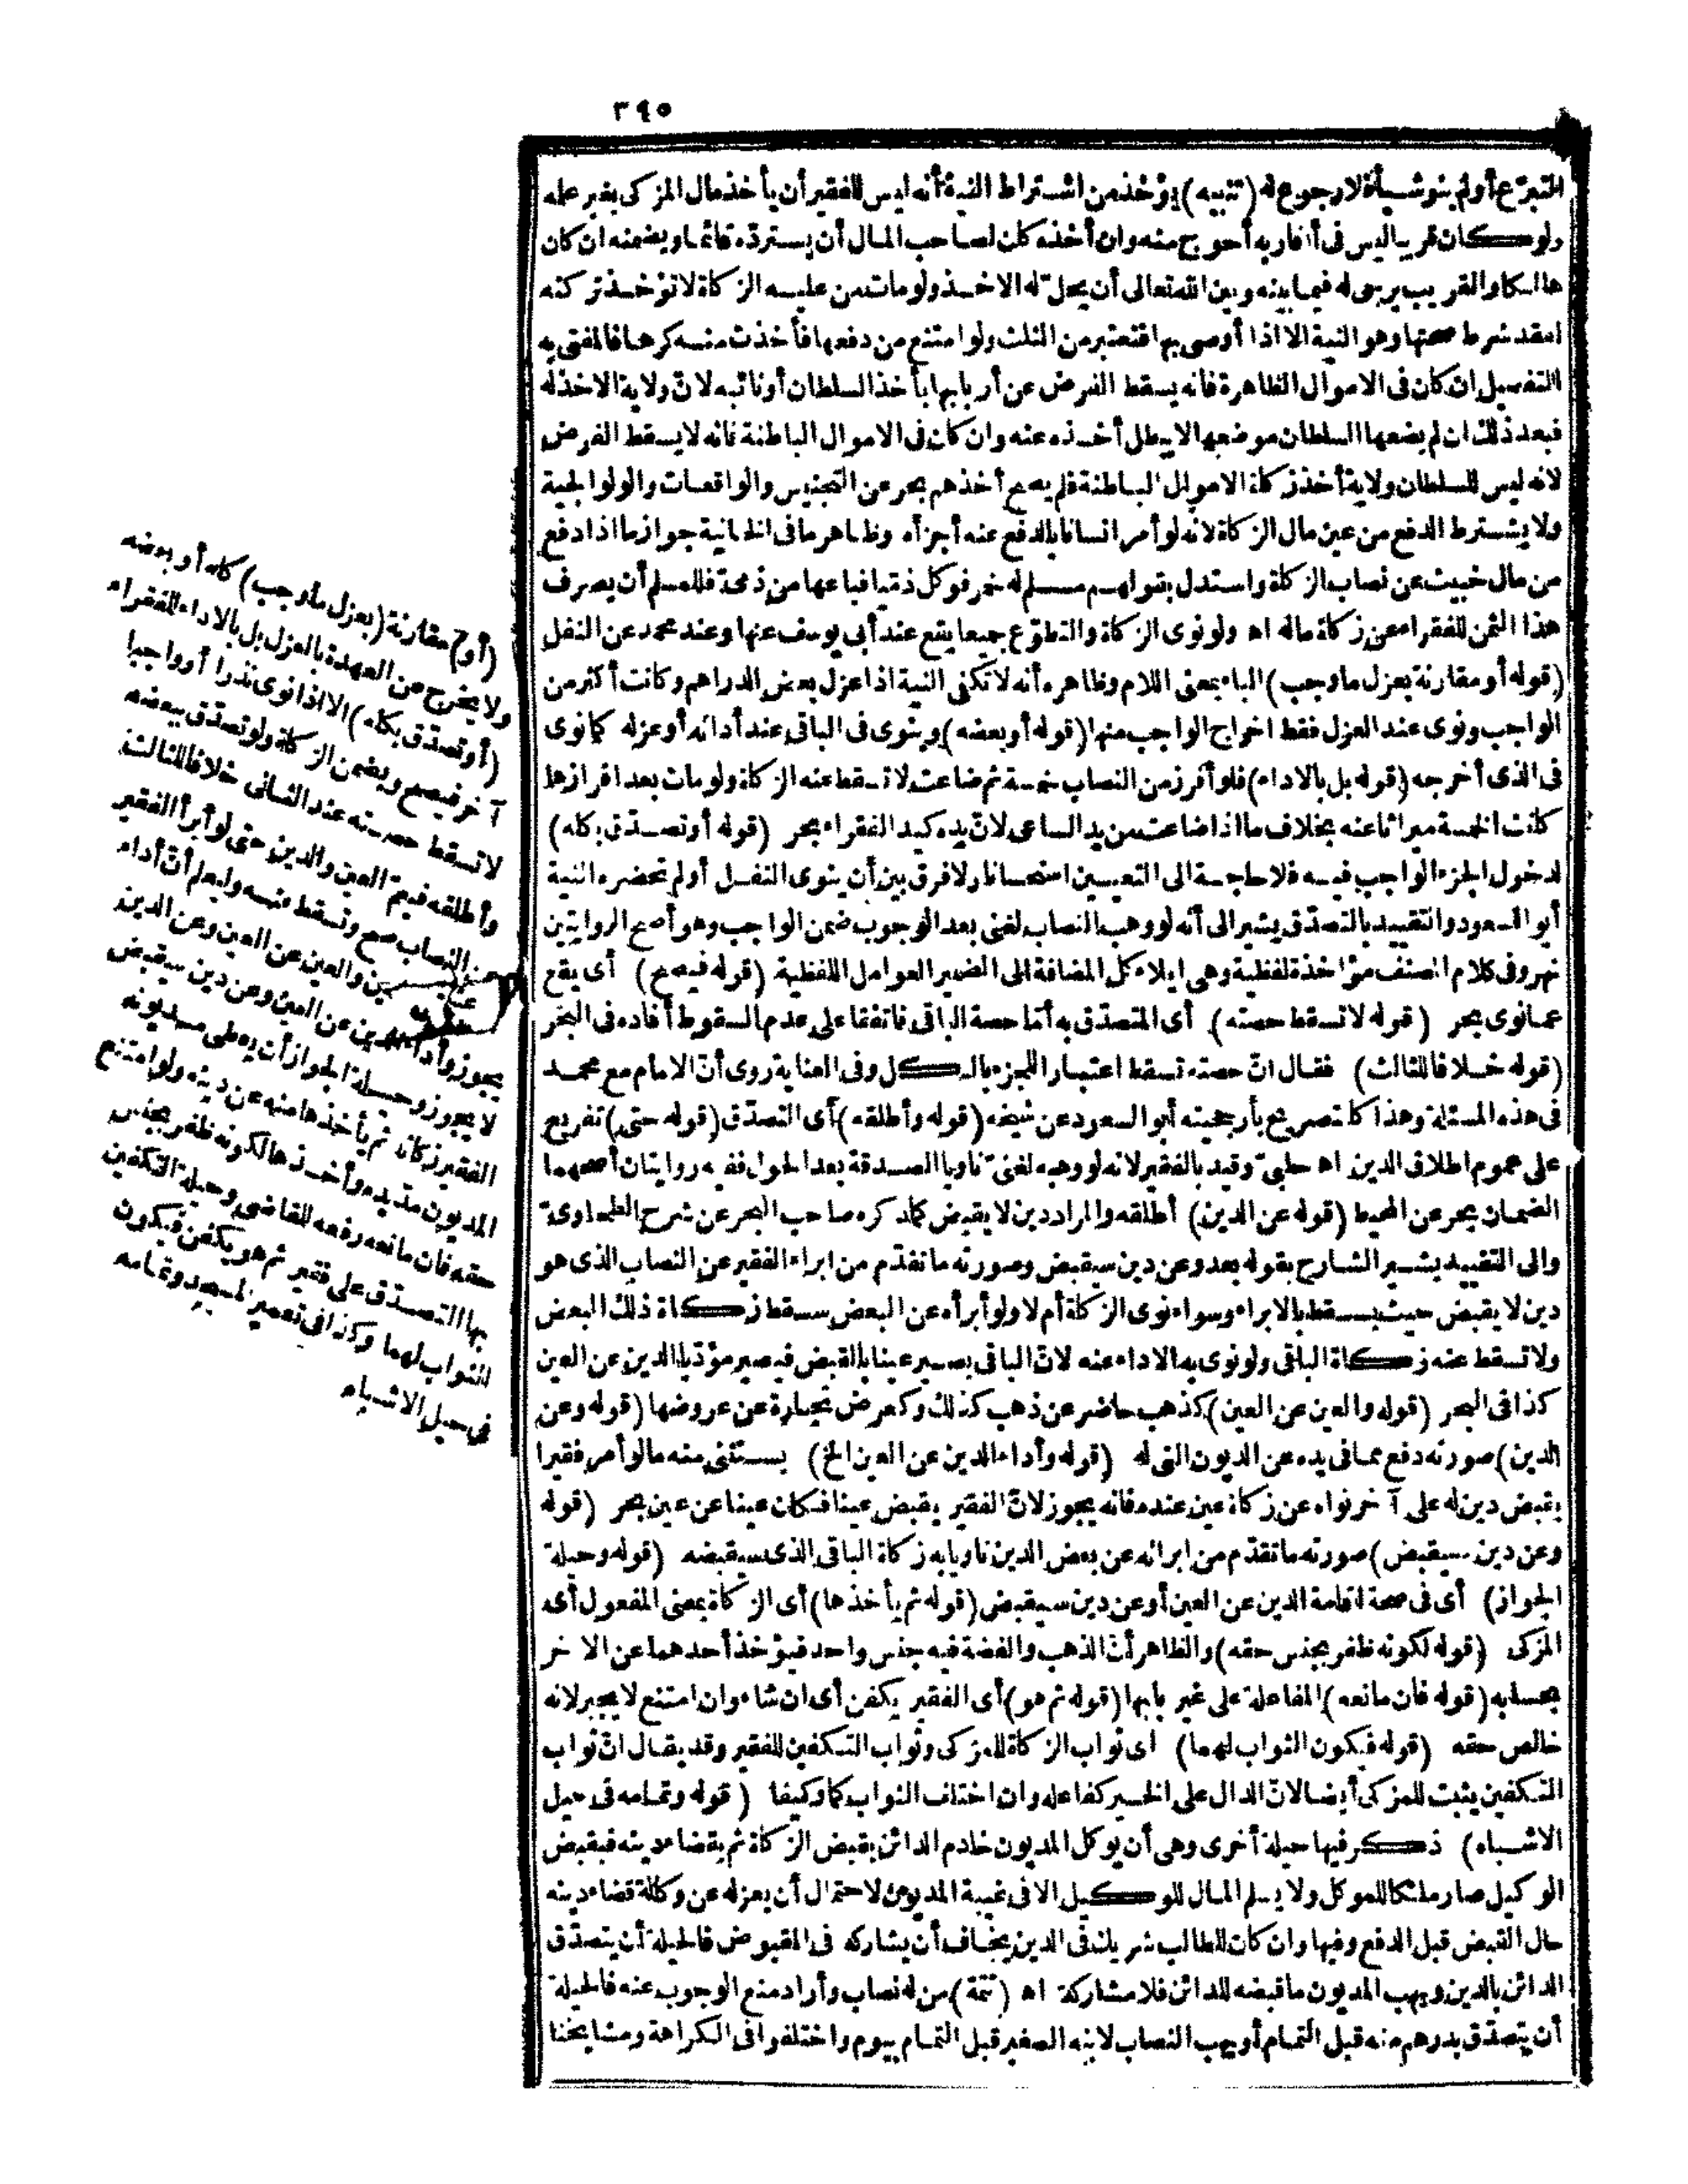 ٣٩٥
المتبرّع أو لم ينو شيأ فلا رجوع له (تنبيه) يؤخذ من اشتراط النية أنه ليس للفقير أن يأخذ مال المزكى بغير علمه
ولو كان قريبا ليس فى أقاربه أحوج منه وان أخذه كان لصاحب المال أن يستردّه قائما ويضمنه ان كان
هالكا والقريب يرجى له فيما بينه وبين الله تعالى أن يحل له الاخذ ولو مات من عليه الزكاة لا تؤخذ تركته
لفقد شرط صحتها وهو النية الا اذا أوصى بها فتعتبر من الثلث ولو امتنع من دفعها فأخذت منه كرها فالمفتى به
التفصيل ان كان فى الاموال الظاهرة فانه يسقط الفرض عن أربابها بأخذ السلطان أو نائبه لانّ ولاية الاخذ له
فبعد ذلك ان لم يضعها السلطان موضعها لا يبطل أخذه عنه وان كان فى الاموال الباطنة فانه لا يسقط الفرض
لانه ليس للسلطان ولاية أخذ زكاة الاموال الباطنة فلم يصح أخذهم بحر عن التجنيس والواقعات والولوالجية
ولا يشترط الدفع من عين مال الزكاة لانه لو أمر انسانا بالدفع عنه أجزأه وظاهر ما فى الخانية جواز ما اذا دفع
من مال خبيث عن نصاب الزكاة واستدل بقولهم مسلم له خمر فوكل ذميا فباعها من ذمىّ فللمسلم أن يصرف
هذا الثمن للفقراء عن زكاة ماله اه ولو نوى الزكاة والتطوّع جميعا يقع عند أبى يوسف عنها وعند محمد عن النفل
(قوله أو مقارنة بعزل ما وجب) الباء بمعنى اللام وظاهره أنه لا تكفى النية اذا عزل بعض الدراهم وكانت أكثر من
الواجب ونوى عند العزل فقط اخراج الواجب منها (قوله أو بعضه) وينوى فى الباقى عند أدائه أو عزله كما نوى
فى الذى أخرجه (قوله بل بالاداء) فلو أفرز من النصاب خمسة ثم ضاعت لا تسقط عنه الزكاة ولو مات بعد افرازها
كانت الخمسة ميراثا عنه بخلاف ما اذا ضاعت من يد الساعى لانّ يده كيد الفقراء بحر (قوله أو تصدّق بكله)
لدخول الجزء الواجب فيه فلا حاجة الى التعيين استحسانا ولا فرق بين أن ينوى النفل أو لم تحضره النية
أبو السعود والتقييد بالتصدّق يشير الى أنه لو وهب النصاب لغنى بعد الوجوب ضمن الواجب وهو أصح الروايتين
نهر وفى كلام المصنف مؤاخذة لفظية وهى ايلاء كل المضافة الى الضمير العوامل اللفظية (قوله فيصح) أى يقع
عما نوى بحر (قوله لا تسقط حصته) أى المتصدّق به أمّا حصة الباقى فاتفقا على عدم السقوط أفاده فى البحر
(قوله خلافا للثالث) فقال انّ حصته تسقط اعتبارا للجزء بالكل وفى العناية روى أنّ الامام مع محمد
فى هذه المسئلة وهذا كالتصريح بأرجحيته أبو السعود عن شيخه (قوله وأطلقه) أى التصدّق (قوله حتى) تفريع
على عموم اطلاق الدين اه حلبىّ وقيد بالفقير لانه لو وهبه لغنىّ ناويا الصدقة بعد الحول ففيه روايتان أصحهما
الضمان بحر عن المحيط (قوله عن الدين) أطلقه والمراد دين لا يقبض كما ذكره صاحب البحر عن شرح الطحاوىّ
والى التقييد يشير الشارح بقوله بعد وعن دين سيقبض وصورته ما تقدّم من ابراء الفقير عن النصاب الذى هو
دين لا يقبض حيث يسقط بالابراء وسواء نوى الزكاة أم لا ولو أبرأه عن البعض سقط زكاة ذلك البعض
ولا تسقط عنه زكاة الباقى ولو نوى به الاداء عنه لانّ الباقى يصير عينا بالقبض فيصير مؤدّيا الدين عن العين
كذا فى البحر (قوله والعين عن العين) كذهب حاضر عن ذهب كذلك وكعرض تجارة عن عروضها (قوله وعن
الدين) صورته دفع مما فى يده عن الديون التى له (قوله وأداء الدين عن العين الخ) يستثنى منه ما لو أمر فقيرا
بقبض دين له على آخر نواه عن زكاة عين عنده فانه يجوز لانّ الفقير يقبض عينا فكان عينا عن عين بحر (قوله
وعن دين سيقبض) صورته ما تقدّم من ابرائه عن بعض الدين ناويا به زكاة الباقى الذى سيقبضه (قوله وحيلة
الجواز) أى فى صحة اقامة الدين عن العين أو عن دين سيقبض (قوله ثم يأخذها) أى الزكاة بمعنى المفعول أى
المزكى (قوله لكونه ظفر بجنس حقه) والظاهر أن الذهب والفضة فيه جنس واحد فيؤخذ أحدهما عن الاخر
بحسابه (قوله فان مانعه) المفاعلة على غير بابها (قوله ثم هو) أى الفقير يكفن أى ان شاء وان امتنع لا يجبر لانه
خالص حقه (قوله فيكون الثواب لهما) أى ثواب الزكاة للمزكى وثواب التكفين للفقير وقد يقال انّ ثواب
التكفين يثبت للمزكى أيضا لانّ الدال على الخير كفاعله وان اختلف الثواب كما وكيفا (قوله وتمامه فى حيل
الاشباه) ذكر فيها حيلة أخرى وهى أن يوكل المديون خادم الدائن بقبض الزكاة ثم بقضاء دينه فبقبض
الوكيل صار ملكا للموكل ولا يسلم المال للوكيل الا فى غيبة المديون لاحتمال أن يعزله عن وكالة قضاء دينه
حال القبض قبل الدفع وفيها وان كان للطالب شريك فى الدين يخاف أن يشاركه فى المقبوض فالحيلة أن يتصدّق
الدائن بالدين ويهب المديون ما قبضه للدائن فلا مشاركة اه (تتمة) من له نصاب وأراد منع الوجوب عنه فالحيلة
أن يتصدّق بدرهم منه قبل التمام أو يهب النصاب لابنه الصغير قبل التمام بيوم واختلفوا فى الكراهة ومشايخنا
(أو) مقارنة (بعزل ما وجب) كله أو بعضه
ولا يخرج عن العهدة بالعزل بل بالاداء للفقراء
(أو تصدّق بكله) الا اذا نوى نذرا أو واجبا
آخر فيصح ويضمن الزكاة ولو تصدّق ببعضه
لا تسقط حصته عند الثانى خلافا للثالث
وأطلقه فيعمّ العين والدين حتى لو أبرأ الفقير
عن النصاب صح وتسقط عنه واعلم أنّ أداء
الدين والعين عن العين وعن الدين
يجوز وأداء الدين عن العين وعن دين سيقبض
لا يجوز وحيلة الجواز أن يعطى مديونه
الفقير زكاته ثم يأخذها منه عن دينه ولو امتنع
المديون مدّ يده وأخذها لكونه ظفر بجنس
حقه فان مانعه رفعه للقاضى وحيلة التكفين
بها التصدّق على فقير ثم هو يكفن فيكون
الثواب لهما وكذا فى تعمير المسجد وتمامه
فى حيل الاشباه